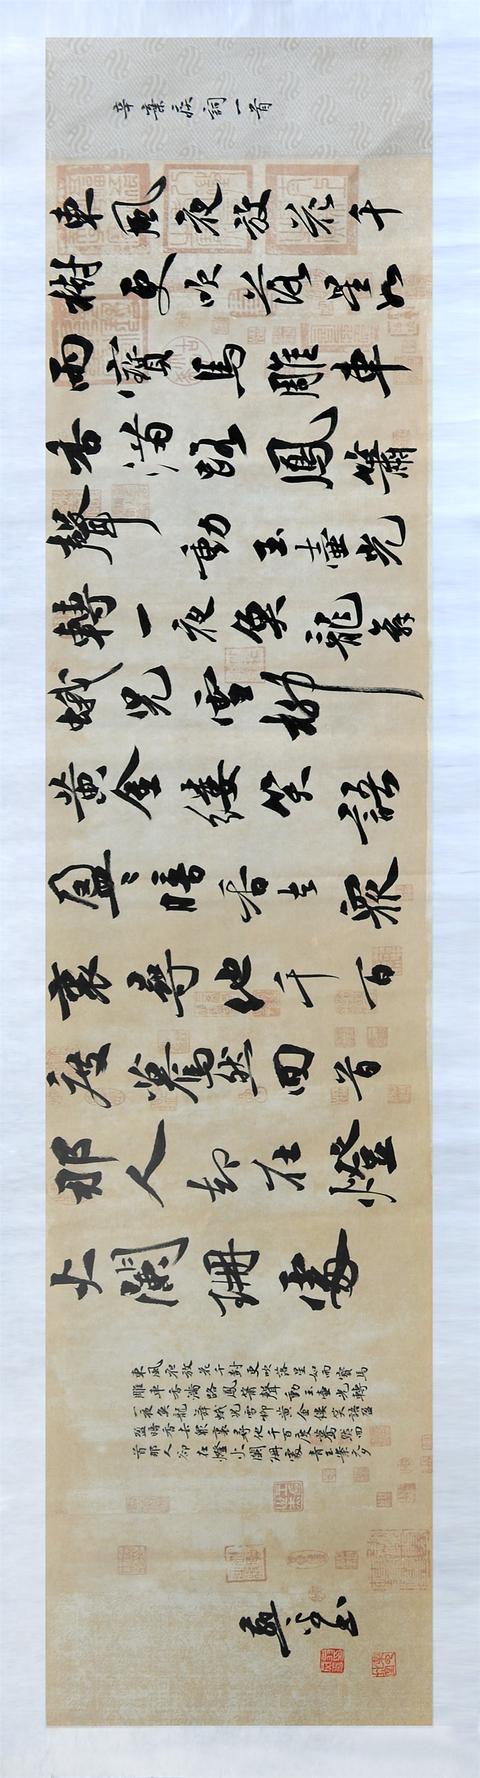 辛棄疾詞一首
東風夜放花千
樹更吹落星如
雨寶馬雕車
香滿路鳳簫
聲動玉壺光
轉一夜魚龍舞
蛾兒雪柳
黃金縷笑語
盈〻暗香去眾
裏尋他千百
度驀然回首
那人却在燈
火闌珊處
東風夜放花千樹更吹落星如雨寶馬
雕車香滿路鳳簫聲動玉壺光轉
一夜魚龍舞蛾兒雪柳黃金縷笑語盈
盈暗香去眾裏尋他千百度驀然回
首那人卻在燈火闌珊處青玉案元夕